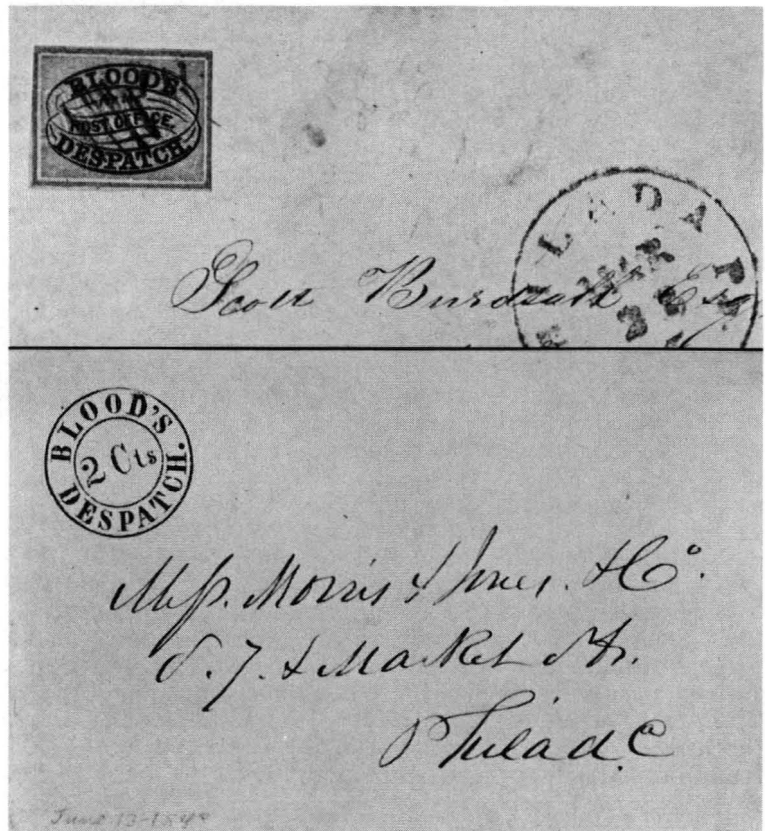 BLOOD'S
POST OFFICE.
DESPATCH.
PHILADA Pa.
MAR
Scott Esq
BLOOD'S
2 Cts
DESPATCH.
Mess. Morris & Jones. & Co.
& Market Str.
Philad.
June 13-184